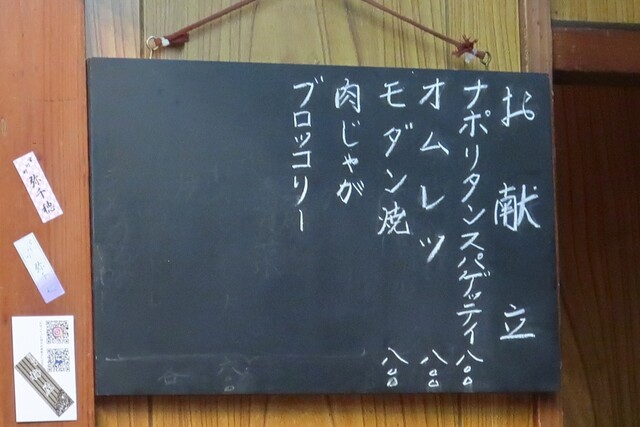 お献立
ナポリタンスパゲッティ 八〇〇
オムレツ 八〇〇
モダン焼 八〇〇
肉じゃが
ブロッコリー
各 六〇〇
弥千穂